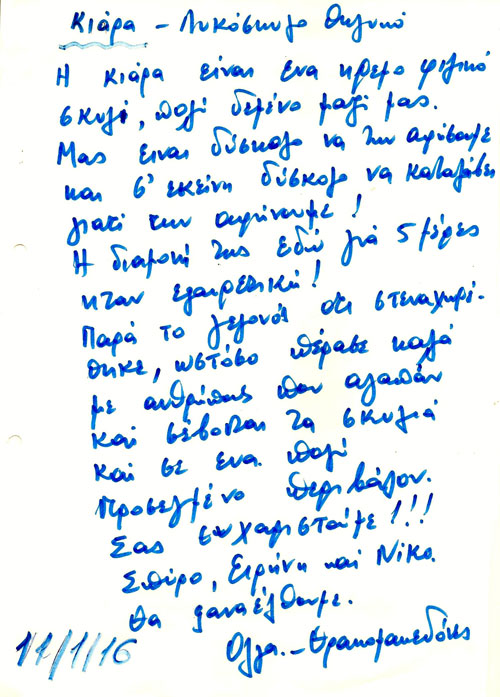 Κιάρα - Λυκόσκυλο θηλυκό
Η Κιάρα είναι ενα ηρεμο φιλικό
σκυλί, πολύ δεμένο μαζί μας.
Μας ειναι δύσκολο να την αφήσουμε
και σ' εκείνη δύσκολο να καταλάβει
γιατί την αφήνουμε!
Η διαμονή της εδώ γιά 5 μέρες
ηταν εξαιρετική!
Παρά το γεγονός οτι στεναχωρή-
θηκε, ωστόσο πέρασε καλά
με ανθρώπους που αγαπάν
και σέβονται τα σκυλιά
και σε ενα πολύ
προσεγμένο περιβάλλον.
Σας ευχαριστούμε!!!
Σπύρο, Ειρήνη και Νίκο.
Θα ξαναέλθουμε.
11/1/16 Ολγα. - Θρακομακεδόνες